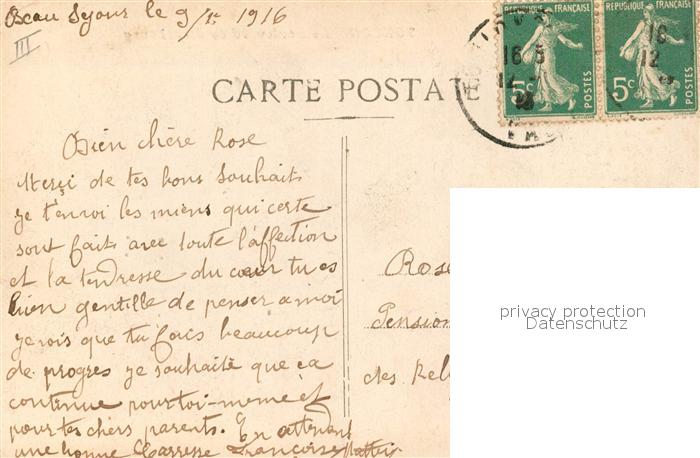 Beau Sejour le 9/1r 1916
III
REPUBLIQUE FRANÇAISE
REPUBLIQUE FRANÇAISE
5c POSTES
5c POSTES
16 5
12
16
12
CARTE POSTALE
Bien chère Rose
Merçi de tes bons souhaits
je t'envoi les miens qui certe
sont faits avec toute l'affection
et la tendresse du cœur tu es
bien gentille de penser a moi
je vois que tu fais beaucoup
de progres je souhaite que ca
continue pour toi-meme et
pour tes chers parents. En attendant
une bonne Carresse Françoise
Rose
Pension
des Rel
privacy protection
Datenschutz